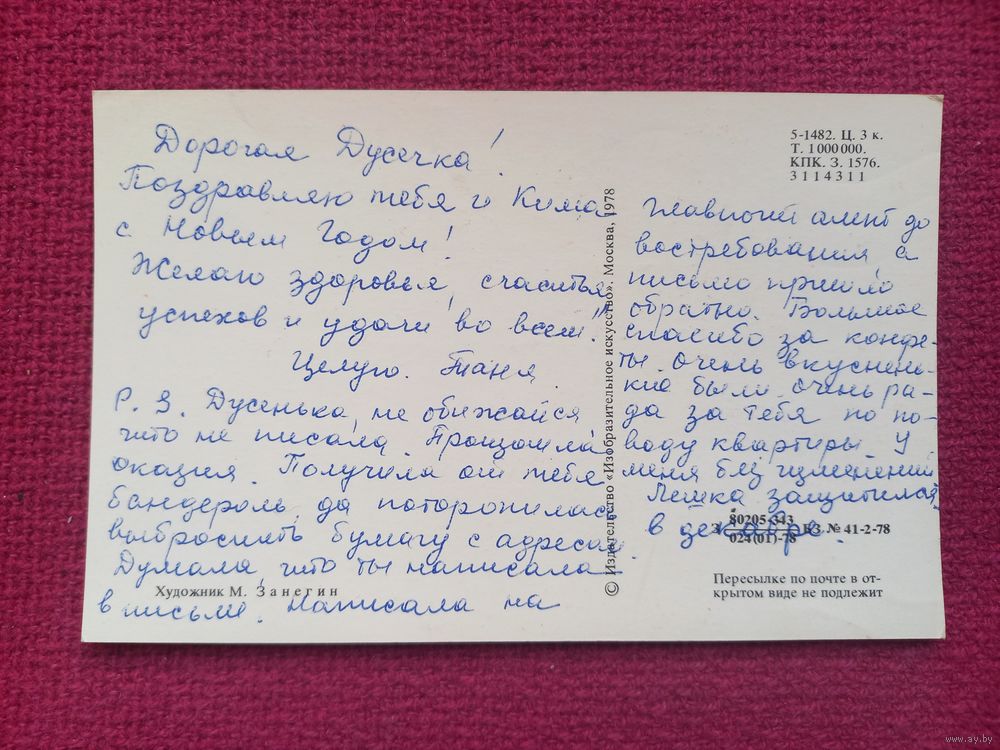 Дорогая Дусечка!
Поздравляю тебя и Кима
с Новым Годом!
Желаю здоровья, счастья,
успехов и удачи во всем!!
Целую. Таня.
P. S. Дусенька, не обижайся
что не писала. Произошла
оказия. Получила от тебя
бандероль, да поторопилась
выбросить бумагу с адресом.
Думала, что ты написала
в письме. Написала на
Художник М. Занегин
© Издательство «Изобразительное искусство». Москва, 1978
5-1482. Ц. 3 к.
Т. 1 000 000.
КПК. З. 1576.
3 1 1 4 3 1 1
главпочтамт до
востребования, а
письмо пришло
обратно. Большое
спасибо за конфе-
ты. Очень вкуснень-
кие были. Очень ра-
да за тебя по по-
воду квартиры. У
меня без изменений.
Лешка защитился
в декабре.
80205-343
024(01)-78
БЗ. № 41-2-78
Пересылке по почте в от-
крытом виде не подлежит
www.ay.by